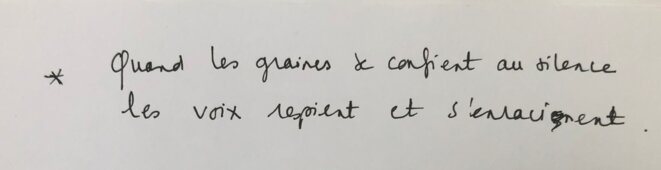 * Quand les graines se confient au silence
les voix respirent et s'enracinent.